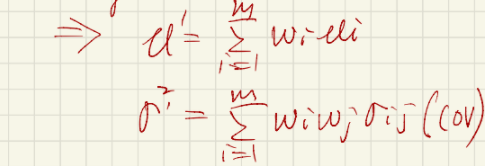 ⇒ μ' = \sum_{i=1}^{m} w_i μ_i
σ^2 = \sum_{i=1}^{m} w_i w_j σ_{ij} (cov)